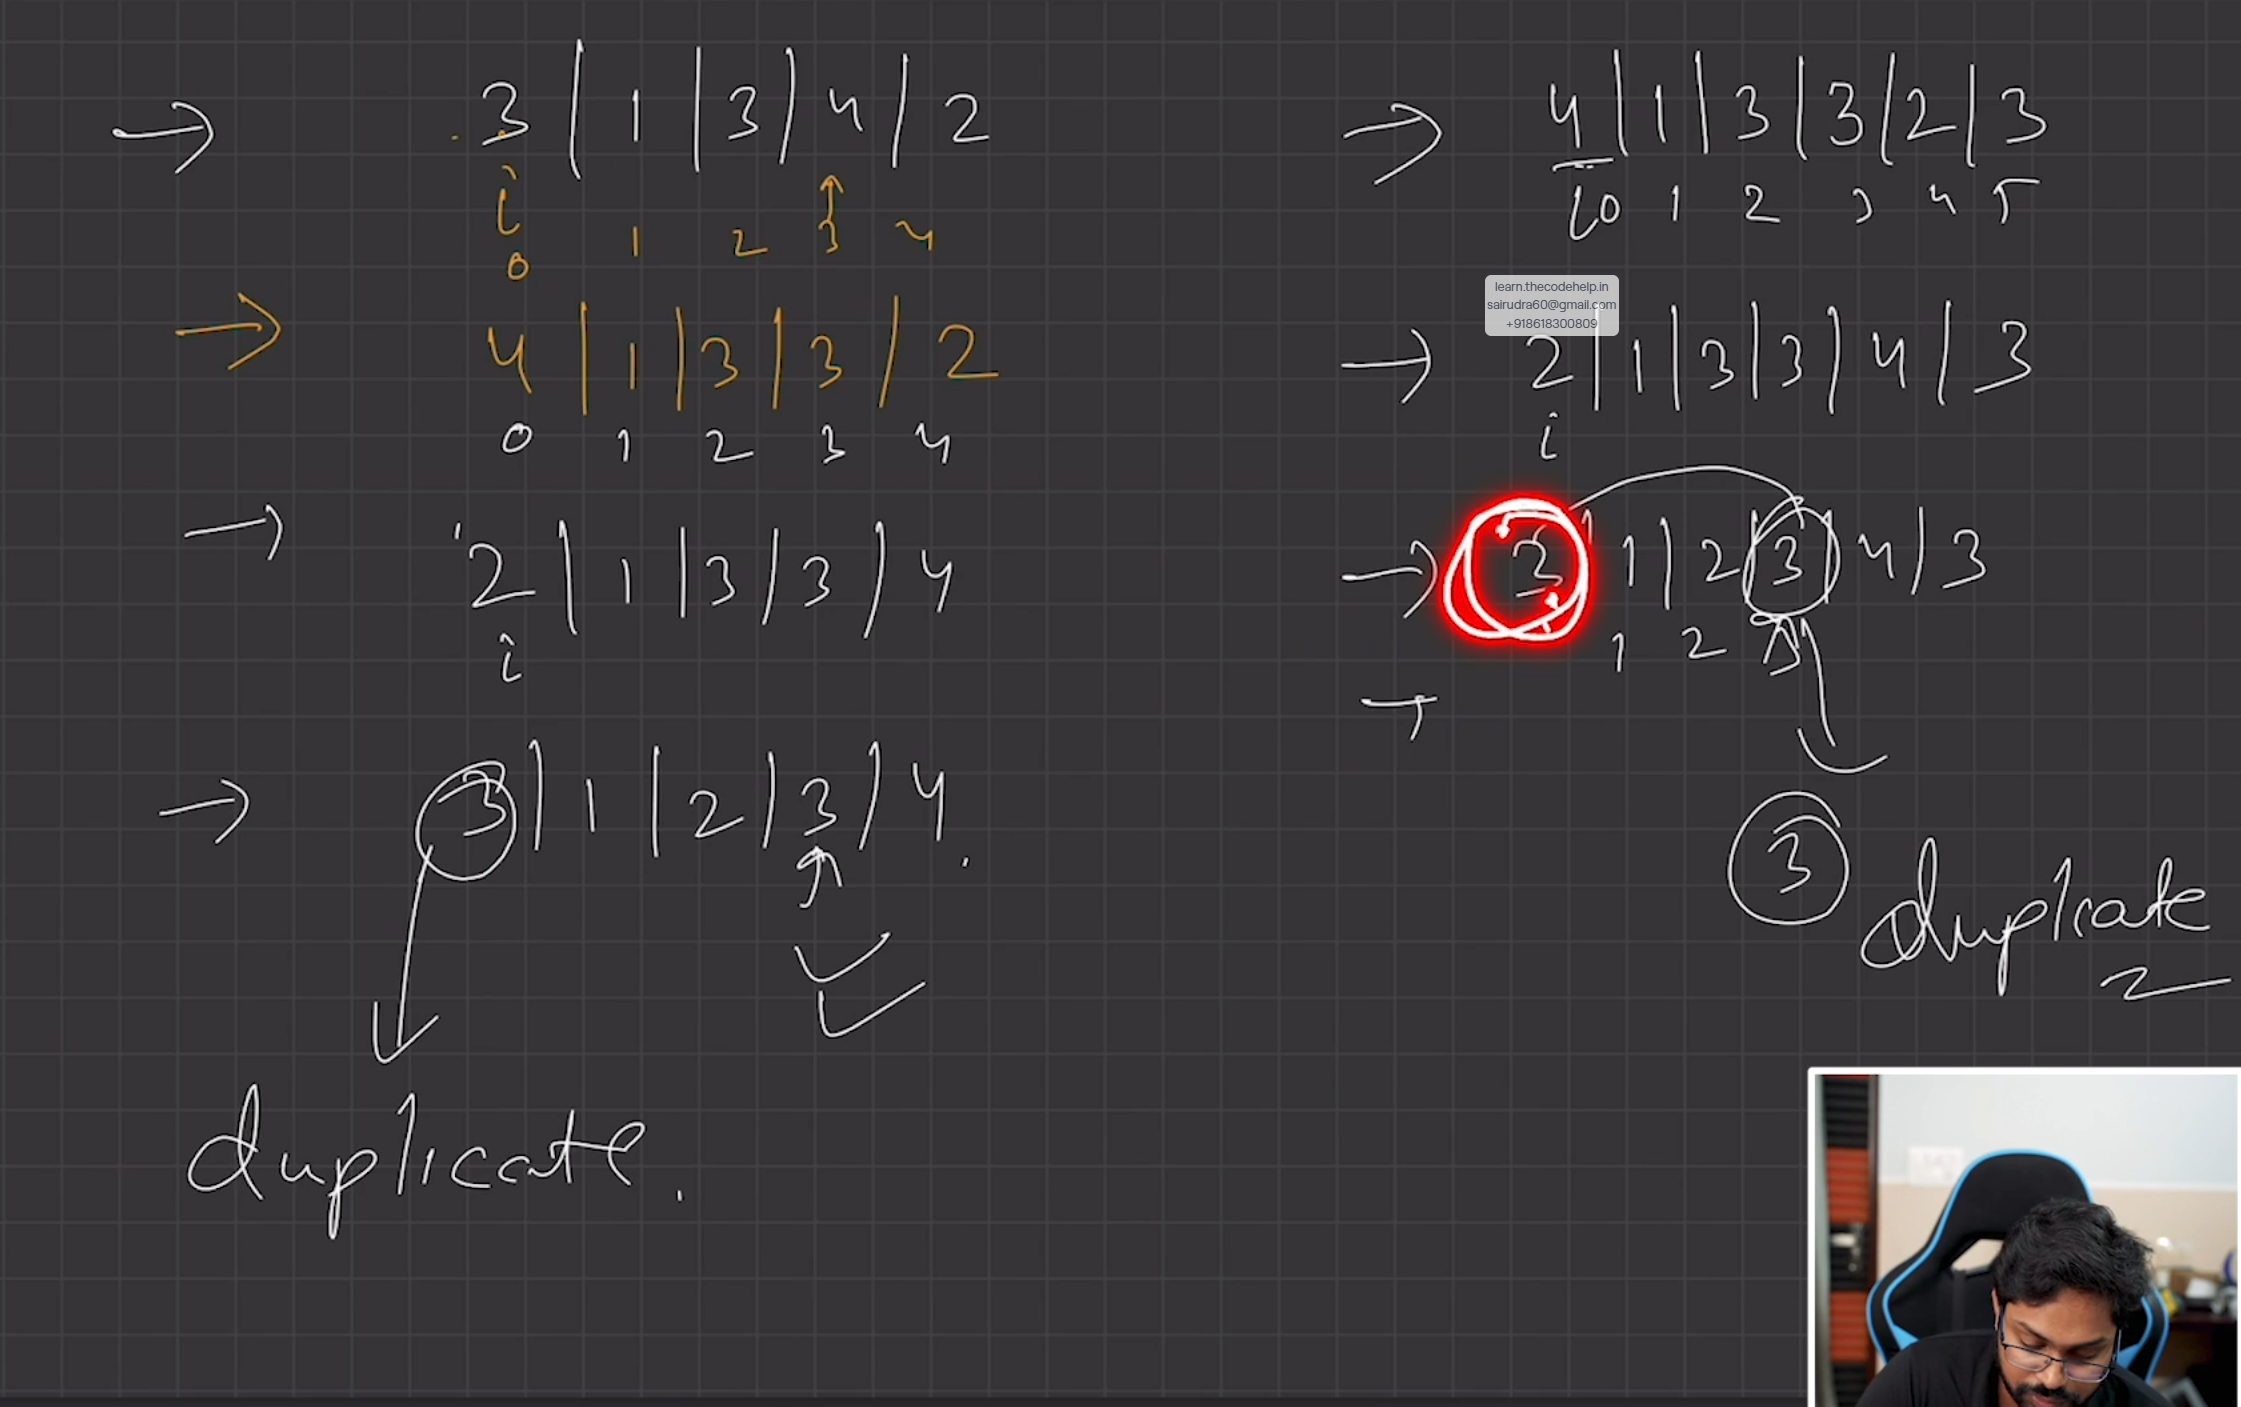 3 | 1 | 3 | 4 | 2
i
0 1 2 3 4
4 | 1 | 3 | 3 | 2
0 1 2 3 4
2 | 1 | 3 | 3 | 4
i
3 | 1 | 2 | 3 | 4
duplicate.
4 | 1 | 3 | 3 | 2 | 3
i 0 1 2 3 4 5
learn.thecodehelp.in
sairudra60@gmail.com
+918618300809
2 | 1 | 3 | 3 | 4 | 3
i
3 | 1 | 2 | 3 | 4 | 3
1 2 3
3 duplicate